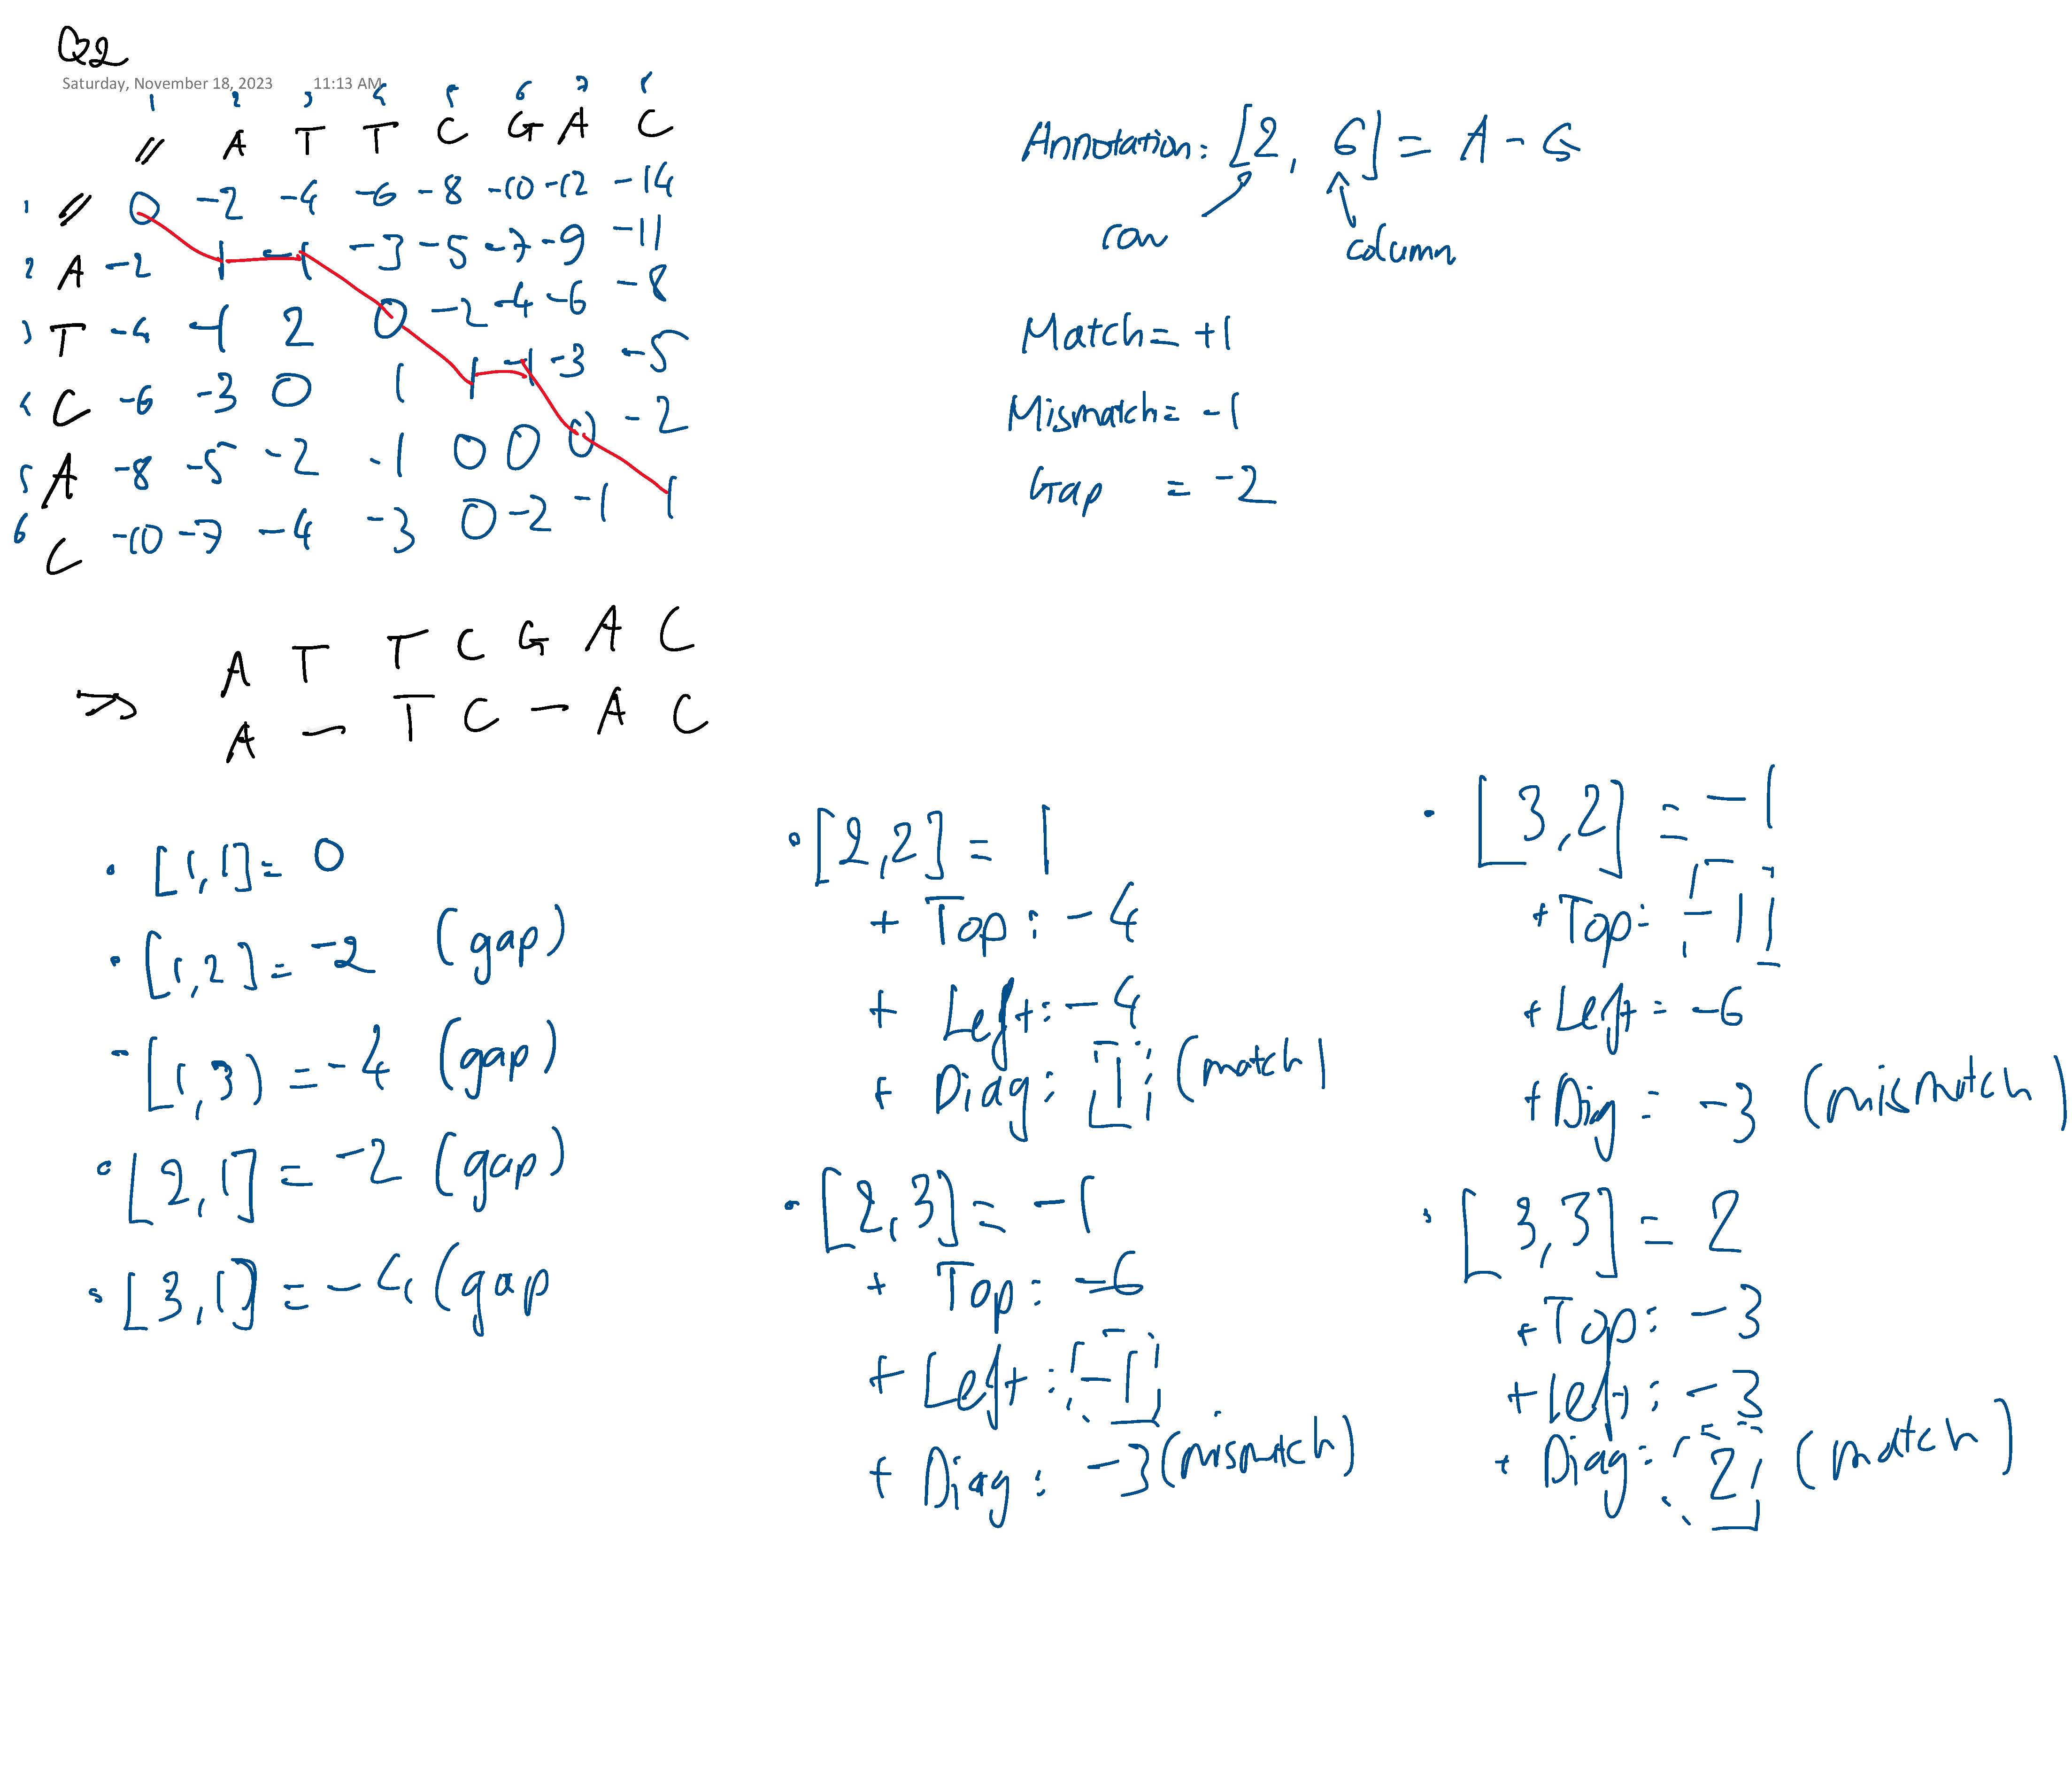 Q2
Saturday, November 18, 2023 11:13 AM
1 2 3 4 5 6 7 8
// A T T C G A C
1 // 0 -2 -4 -6 -8 -10 -12 -14
2 A -2 1 -1 -3 -5 -7 -9 -11
3 T -4 -1 2 0 -2 -4 -6 -8
4 C -6 -3 0 1 1 -1 -3 -5
5 A -8 -5 -2 -1 0 0 0 -2
6 C -10 -7 -4 -3 0 -2 -1 1
Annotation: [2, 6] = A - G
row column
Match = +1
Mismatch = -1
Gap = -2
A T T C G A C
=> A - T C - A C
• [1,1] = 0
• [1,2] = -2 (gap)
• [1,3) = -4 (gap)
• [2,1] = -2 (gap)
• [3,1] = -4 (gap
• [2,2] = 1
+ Top: -4
+ Left: -4
+ Diag: 1 (match)
• [2,3] = -1
+ Top: -6
+ Left: -1
+ Diag: -3 (mismatch)
• [3,2] = -1
+ Top: -1
+ Left = -6
+ Dig = -3 (mismatch)
• [3,3] = 2
+ Top: -3
+ Left: -3
+ Diag: 2 (match)